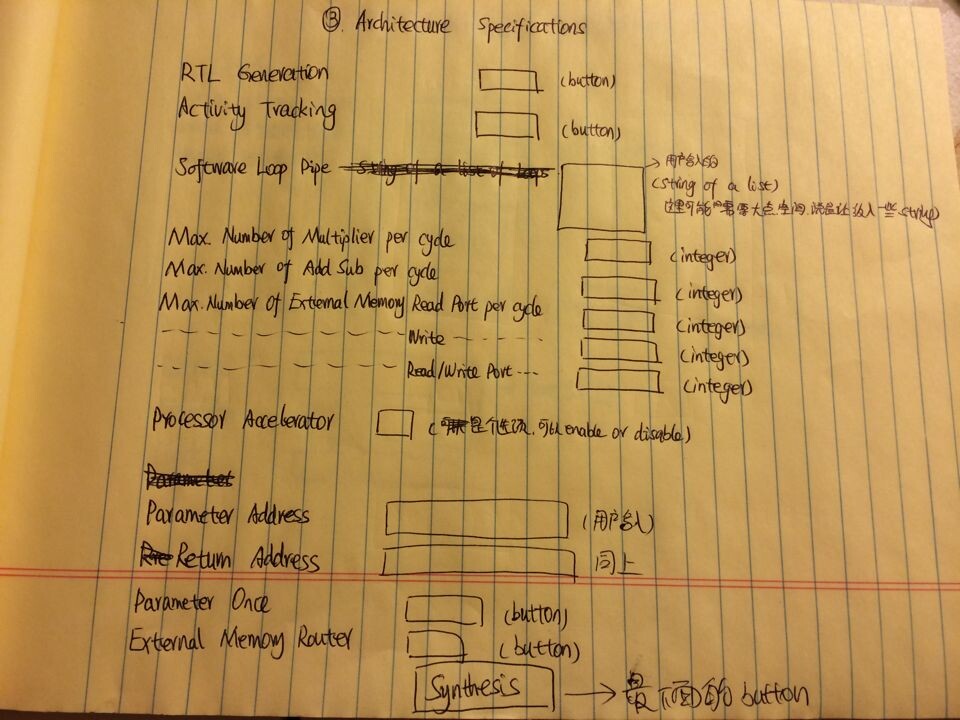 ③. Architecture Specifications
RTL Generation (button)
Activity Tracking (button)
→用户输入的
Software Loop Pipe string of a list of loops (string of a list)
这里可能需要大点空间,
Max. Number of Multiplier per cycle (integer)
Max. Number of Add Sub per cycle (integer)
Max. Number of External Memory Read Port per cycle (integer)
Write (integer)
Read/Write Port (integer)
Processor Accelerator (是个选项,可以enable or disable)
Parameter
Parameter Address (用户输入)
Return Address 同上
Parameter Once (button)
External Memory Router (button)
Synthesis → 最下面的button